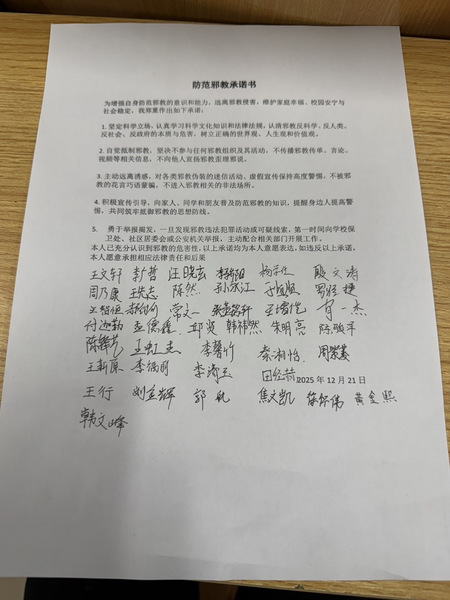 防范邪教承诺书
为增强自身防范邪教的意识和能力，远离邪教侵害，维护家庭幸福、校园安宁与
社会稳定，我郑重作出如下承诺：
1. 坚定科学立场，认真学习科学文化知识和法律法规，认清邪教反科学、反人类、
反社会、反政府的本质与危害，树立正确的世界观、人生观和价值观。
2. 自觉抵制邪教，坚决不参与任何邪教组织及其活动，不传播邪教传单、言论、
视频等相关信息，不向他人宣扬邪教歪理邪说。
3. 主动远离诱惑，对各类邪教伪装的迷信活动、虚假宣传保持高度警惕，不被邪教
的花言巧语蒙骗，不进入邪教相关的非法场所。
4. 积极宣传引导，向家人、同学和朋友普及防范邪教的知识，提醒身边人提高警
惕，共同筑牢抵御邪教的思想防线。
5. 勇于举报揭发，一旦发现邪教违法犯罪活动或可疑线索，第一时间向学校保
卫处、社区居委会或公安机关举报，主动配合相关部门开展工作。
本人已充分认识到邪教的危害性，以上承诺均为本人意愿表达，如违反以上承诺，
本人愿意承担相应法律责任和后果
王文轩 汪晓玄 殷文涛
周乃康 陈然 孙永江
常文一 肖一杰
邱爽 韩祎然 朱明亮 陈顺平
王虹杰 李馨竹 秦湘怡
王新原
2025 年 12 月 21 日
王行 刘立辉 郭帆 焦文凯 黄金熙
韩文峰